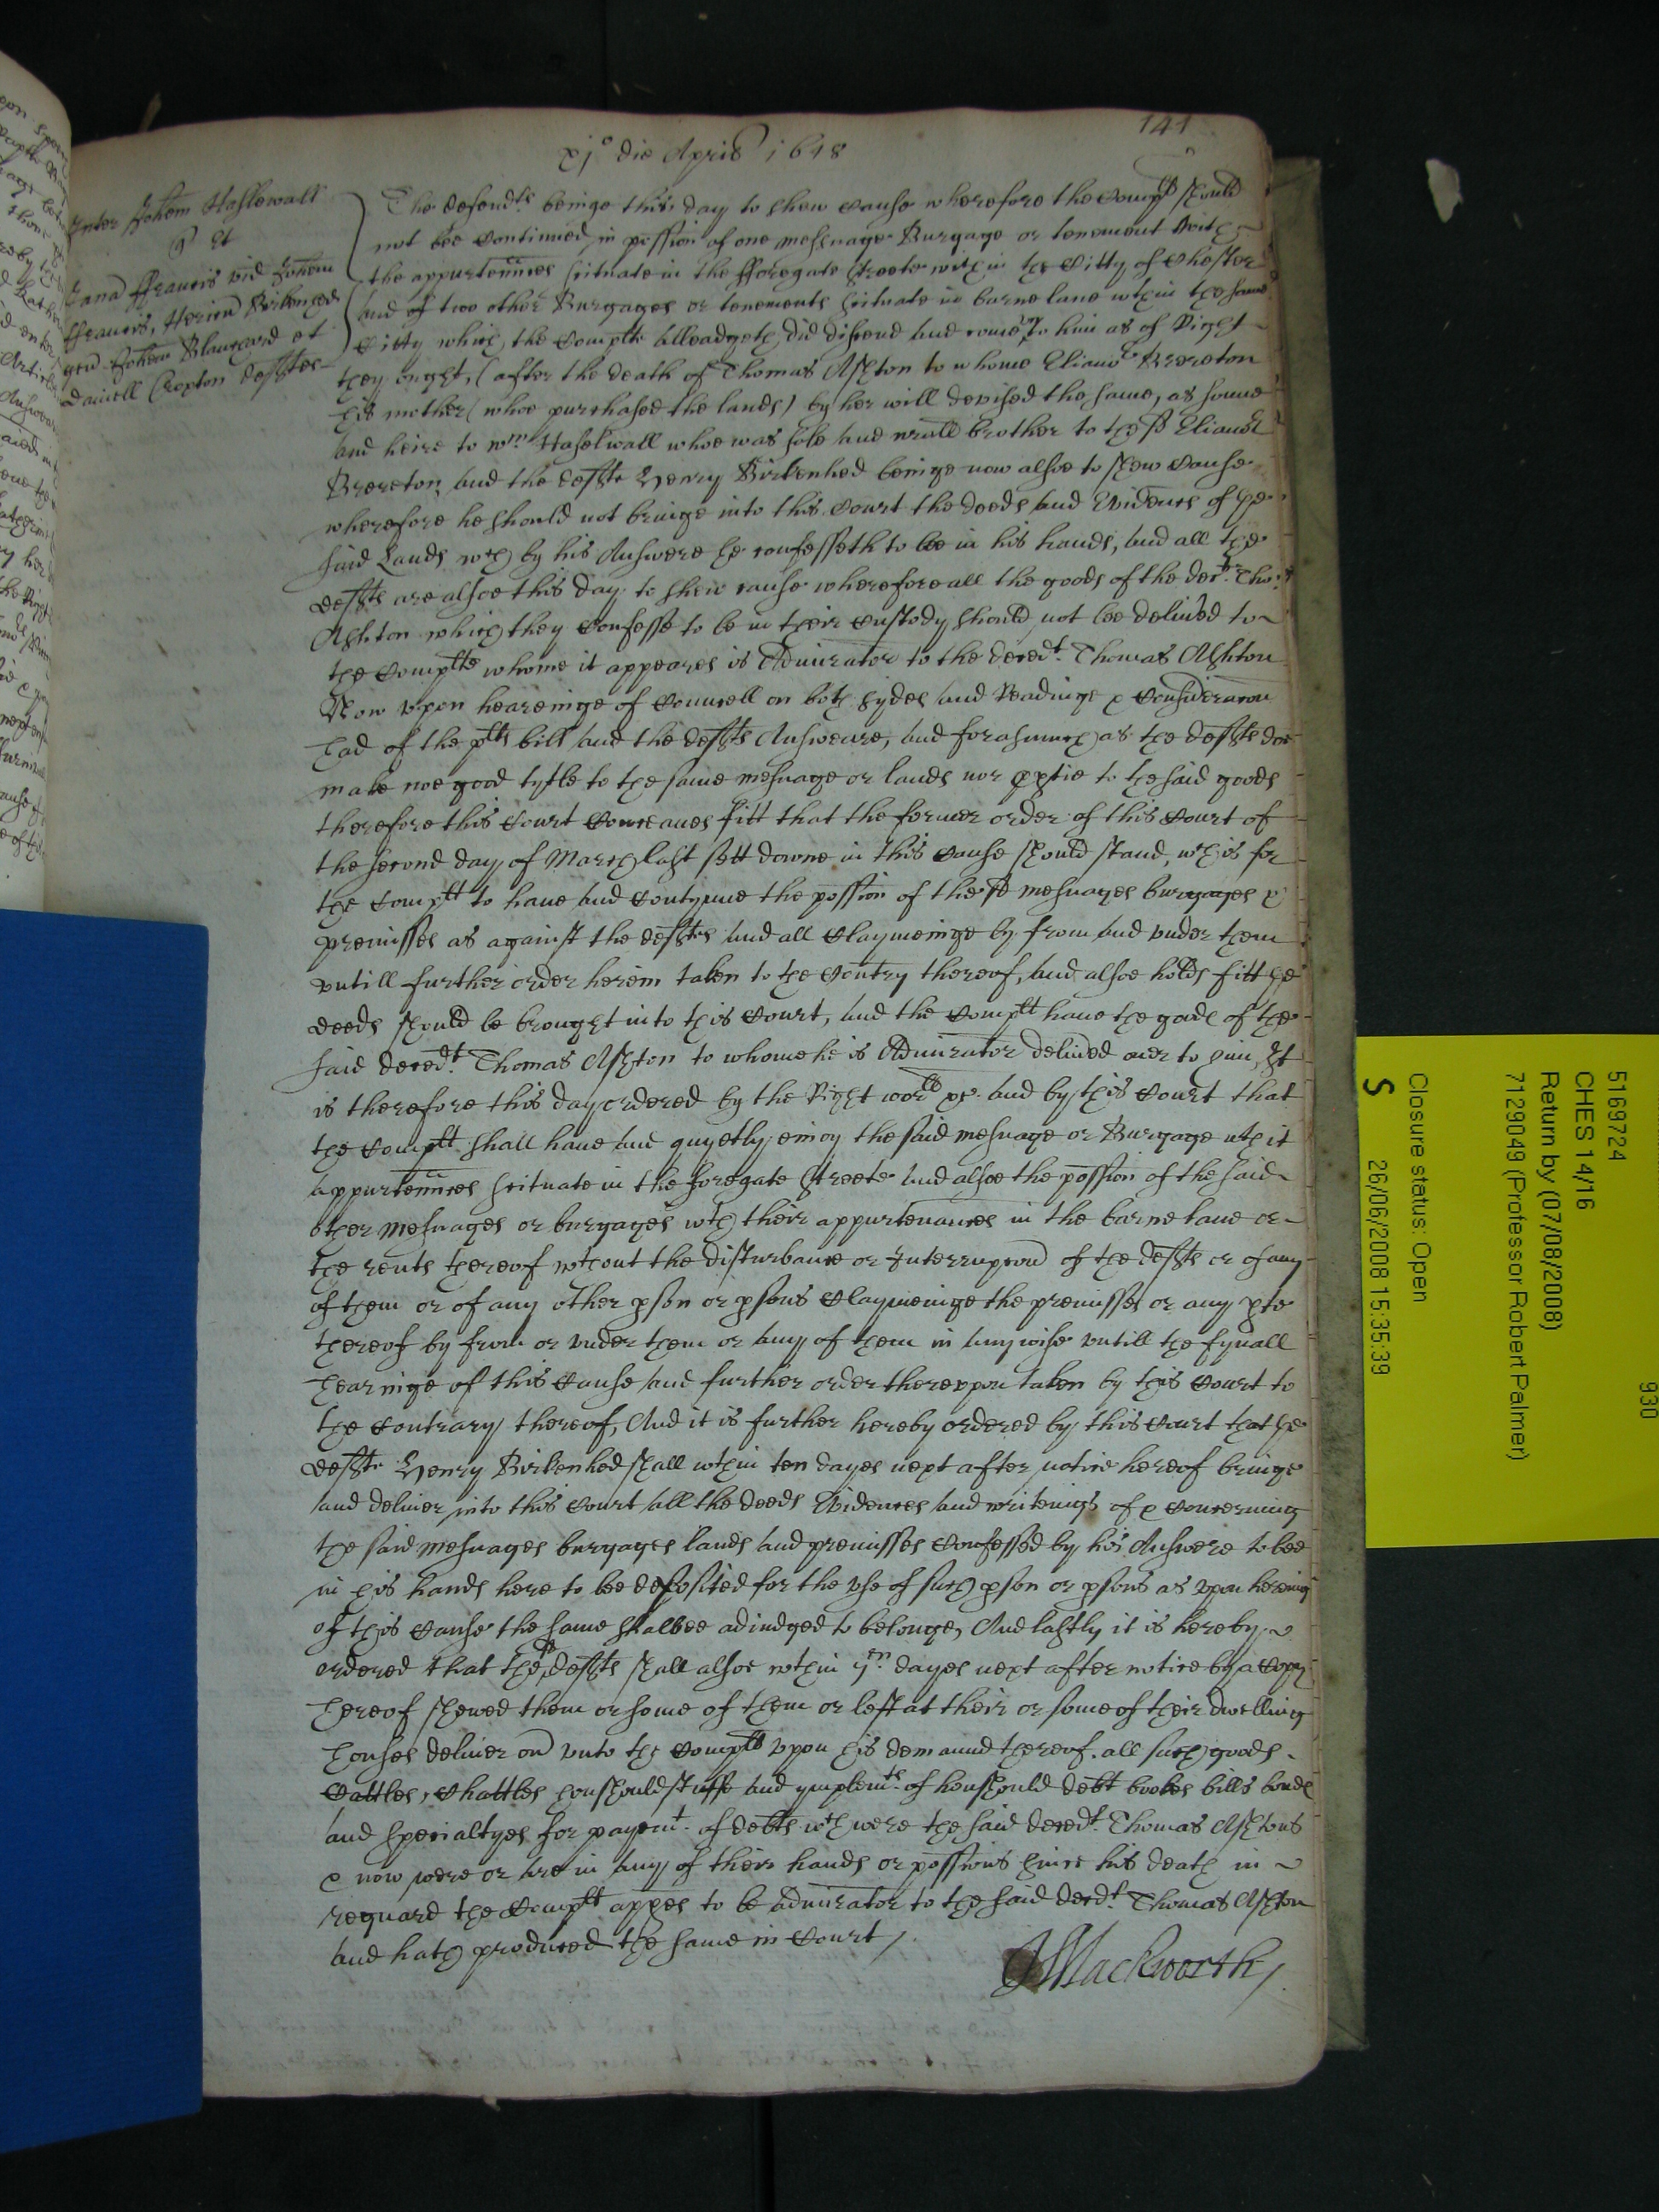 141
xjo die Aprilis 1648
Inter Johem Haslewall
quer et
Jana ffrancis vid Johem
ffrancis, Henricu Birkenhed
gen Johem Blanchard et
Daniell Croxton defftes
The defendts beinge this day to shew cause wherefore the complt should
not bee continued in possion of one messuage Burgage or tenement with
the appurtennces scituate in the fforegate streete within the Citty of Chester
and of two other Burgages or tenements scituate in barne lane wthin the same
Citty which the Complte alleadgeth did discend and come to him as of Right
they ought, (after the death of Thomas Ashton to whome Elianor Brereton
his mother (whoe purchased the lands) by her will devised the same, as sonne
and heire to Wm Haselwall whoe was sole and onely brother to the sd Elianor
Brereton, and the defte Henry Birkenhed beinge now alsoe to shew Cause
wherefore he should not bringe into this Court the deeds and Evidences of the
said Lands wch by his Answere he confesseth to bee in his hands, and all the
deftts are alsoe this day to shew cause wherefore all the goods of the decedt Tho:
Ashton which they confesse to be in their custody should not bee delived to
the Complte whome it appeares is Admirator to the decedt. Thomas Ashton
Now upon heareinge of Councell on both sydes and Readinge & Consideracon
had of the plts bill and the deftts Answeare, and forasmuch as the deftts doe
make noe good tytle to the same messuage or lands nor pptie to the said goods
therefore this Court Conceaues fitt that the former order of this Court of
the second day of March last sett downe in this cause should stand, wch is for
the complt to haue and contynue the possion of the sd messuages burgages &
premisses as against the defftes and all claymeinge by from and vnder them
vntill further order herein taken to the Contry thereof, and alsoe holds fitt the
deeds should be brought into this Court, and the complt haue the goods of the
said decedt. Thomas Ashton to whome he is Admirator delived over to him, It
is therefore this day ordered by the Right worll &c. and by this Court that
the Complt shall haue and quyetly enioy the said messuage or Burgage wth it
appurtennces scituate in the foregate streete and alsoe the possion of the said
other messuages or burgages wth their appurtenances in the barne lane or
the rents thereof wthout the disturbance or Interrupcon of the deftts or of any
of them or of any other pson or psons Claymeinge the premisses or any pte
thereof by from or vnder them or any of them in any wise vntill the fynall
hearinge of this Cause and further order therevpon taken by this Court to
the Contrary thereof, And it is further hereby ordered by this Court that the
defte Henry Birkenhed shall wthin ten dayes next after notice hereof bringe
and deliuer into this Court all the deeds Evidences and writeings of & Concerning
the said messuages burgages lands and premisses Confessed by his Answere to bee
in his hands here to bee deposited for the vse of such pson or psons as vpon hereing
of this Cause the same shalbee adiudged to belonge, And lastly it is hereby
ordered that the sd deftts shall alsoe wthin dayes next after notice by a Copy
hereof shewed them or some of them or left at their or some of their dwelling
houses deliuer ouer vnto the Complte vpon his demaund thereof all such goods
Cattles, Chattles houshould stuffe and ymplemts of houshould debt bookes bills bonds
and specialtyes for paymt. of debts wch were the said decedt. Thomas Ashtons
& now were or are in any of their hands or possions since his death in
reguard the Complt appes to be admirator to the said decedt. Thomas Ashton
and hath produced the same in Court /.
Mackworth
930
5169724
CHES 14/16
Return by (07/08/2008)
7129049 (Professor Robert Palmer)
Closure status: Open
S 26/06/2008 15:35:39